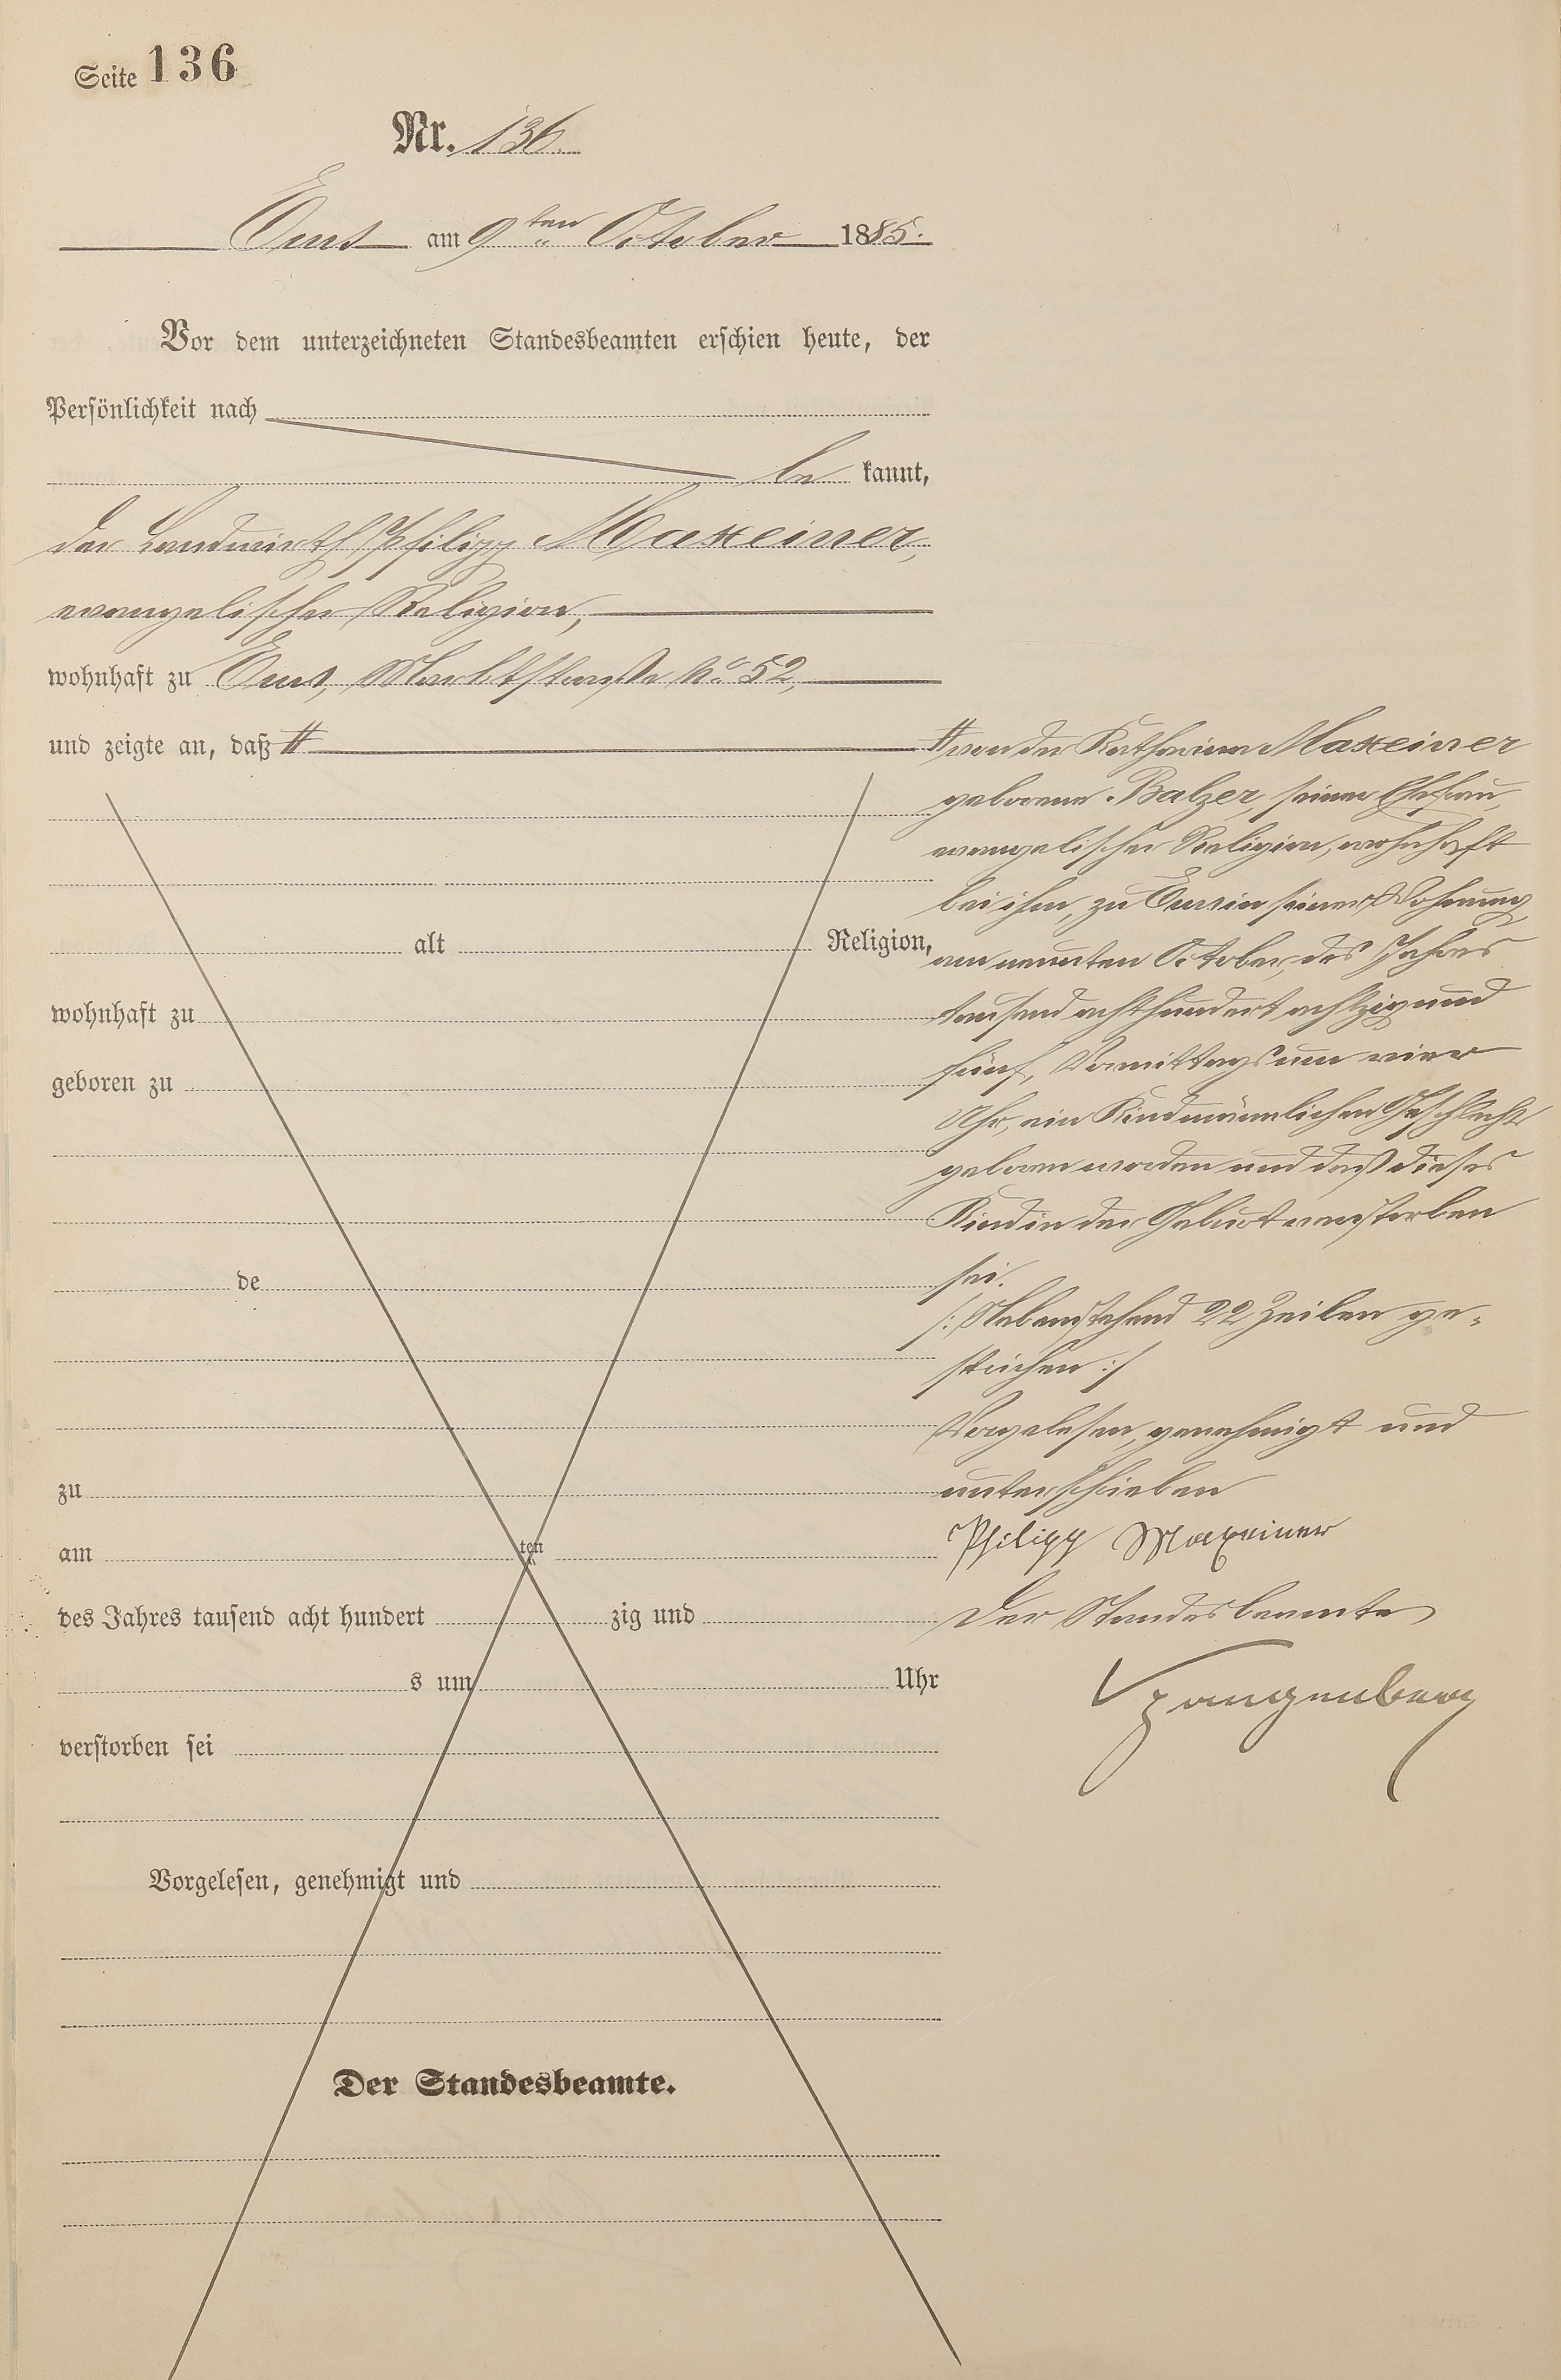 Seite 136
Nr. 136.
Ems am 9ten October 1885.
Vor dem unterzeichneten Standesbeamten erschien heute, der
Persönlichkeit nach
be kannt,
der Landwirth Philipp Maxeiner,
evangelischer Religion,
wohnhaft zu Ems, Marktstraße No 52,
und zeigte an, daß #
alt Religion,
wohnhaft zu
geboren zu
de
zu
am ten
des Jahres tausend acht hundert zig und
s um Uhr
verstorben sei
Vorgelesen, genehmigt und
Der Standesbeamte.
# von der Katharina Maxeiner
geborene Balzer, seiner Ehefrau,
evangelischer Religion, wohnhaft
bei ihm, zu Ems in seiner Wohnung,
am neunten October des Jahres
tausend achthundert achtzig und
fünf, Vormittags um vier
Uhr, ein Kind männlichen Geschlechts
geboren worden und daß dieses
Kind in der Geburt verstorben
sei.
/: Nebenstehend 22 Zeilen ge-
strichen :/
Vorgelesen, genehmigt und
unterschrieben
Philipp Maxeiner
Der Standesbeamte
Spangenberg